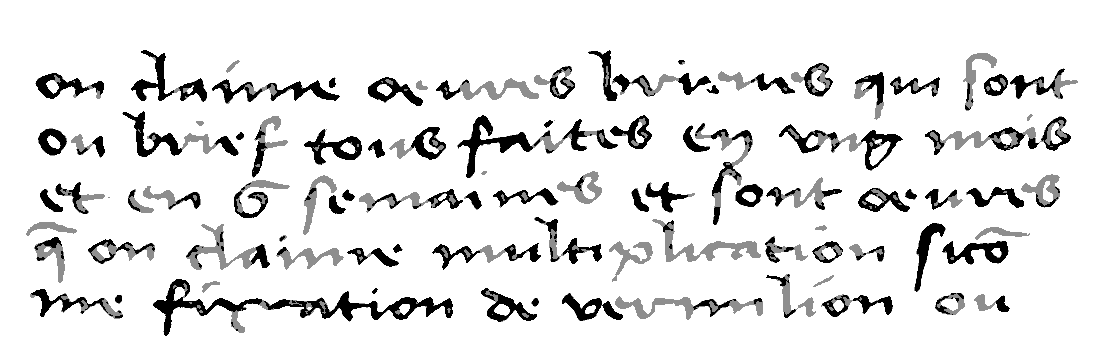 on claime oeuvres brieues qui sont
ou brief tous faites en vng mois
et en ē semaines et sont oeuures
q̄ on claime multiplication sicō
me fixxation de vermilion ou